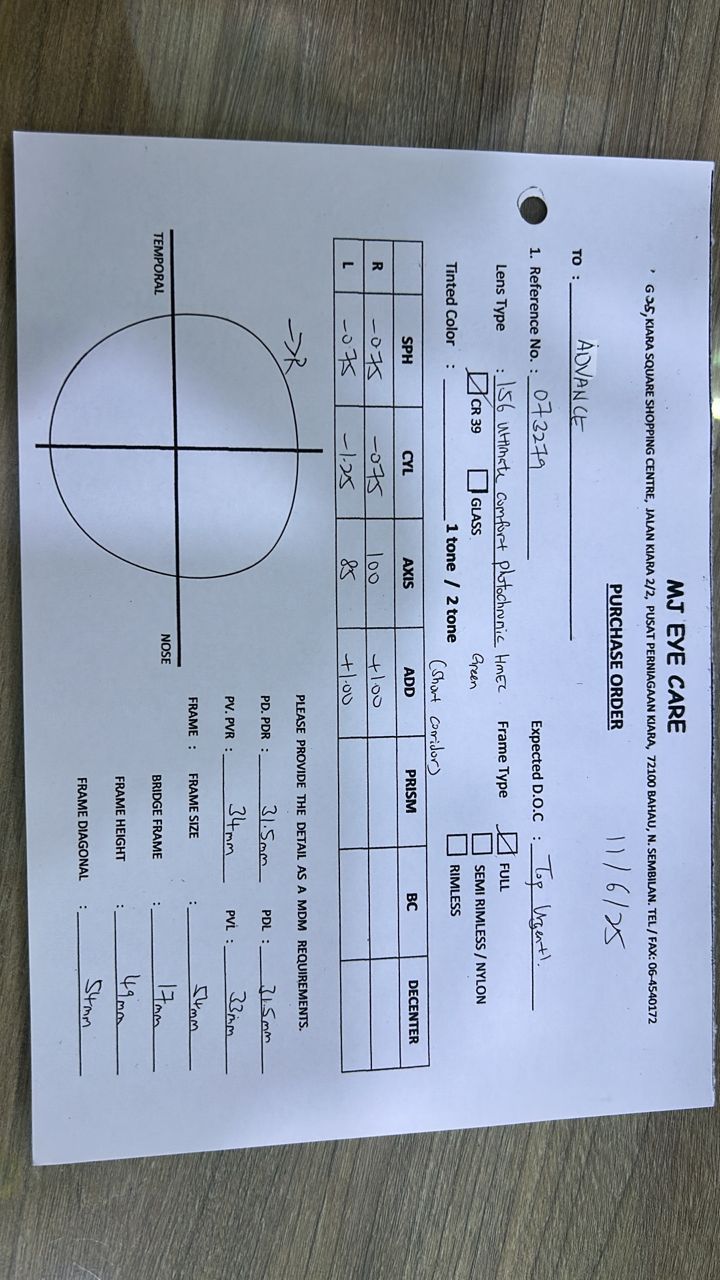 MJ EYE CARE
G 25, KIARA SQUARE SHOPPING CENTRE, JALAN KIARA 2/2, PUSAT PERNIAGAAN KIARA, 72100 BAHAU, N. SEMBILAN. TEL / FAX: 06-4540172
PURCHASE ORDER
11/6/25
TO : ADVANCE
1. Reference No. : 073279 Expected D.O.C : Top Urgent!.
Lens Type : 156 Ultimate comfort photochromic HMEC Frame Type FULL
Green
CR 39 GLASS SEMI RIMLESS / NYLON
Tinted Color : 1 tone / 2 tone (short corridor) RIMLESS
SPH CYL AXIS ADD PRISM BC DECENTER
R -075 -075 100 +1.00
L -075 -1.25 85 +1.00
PLEASE PROVIDE THE DETAIL AS A MDM REQUIREMENTS.
PD. PDR : 31.5mm PDL : 31.5mm
PV. PVR : 34mm PVL : 33mm
FRAME : FRAME SIZE : 54mm
BRIDGE FRAME : 17mm
FRAME HEIGHT : 49mm
FRAME DIAGONAL : 54mm
→R
TEMPORAL NOSE